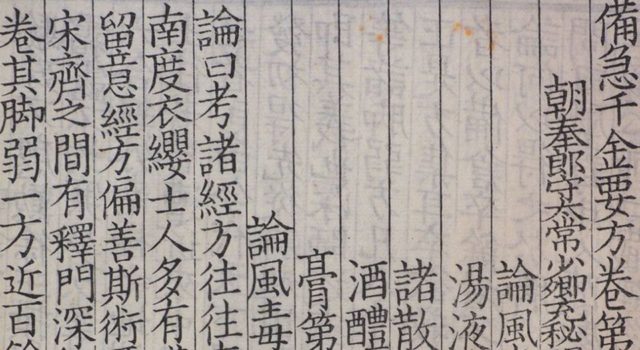 備急千金要方卷第
朝奉郎守太常少卿充秘
論風
湯液
諸散
酒醴
膏第
論風毒
論曰考諸經方往往
南度衣纓士人多有
留意經方偏善斯術
宋齊之間有釋門深
卷其脚弱一方近百餘